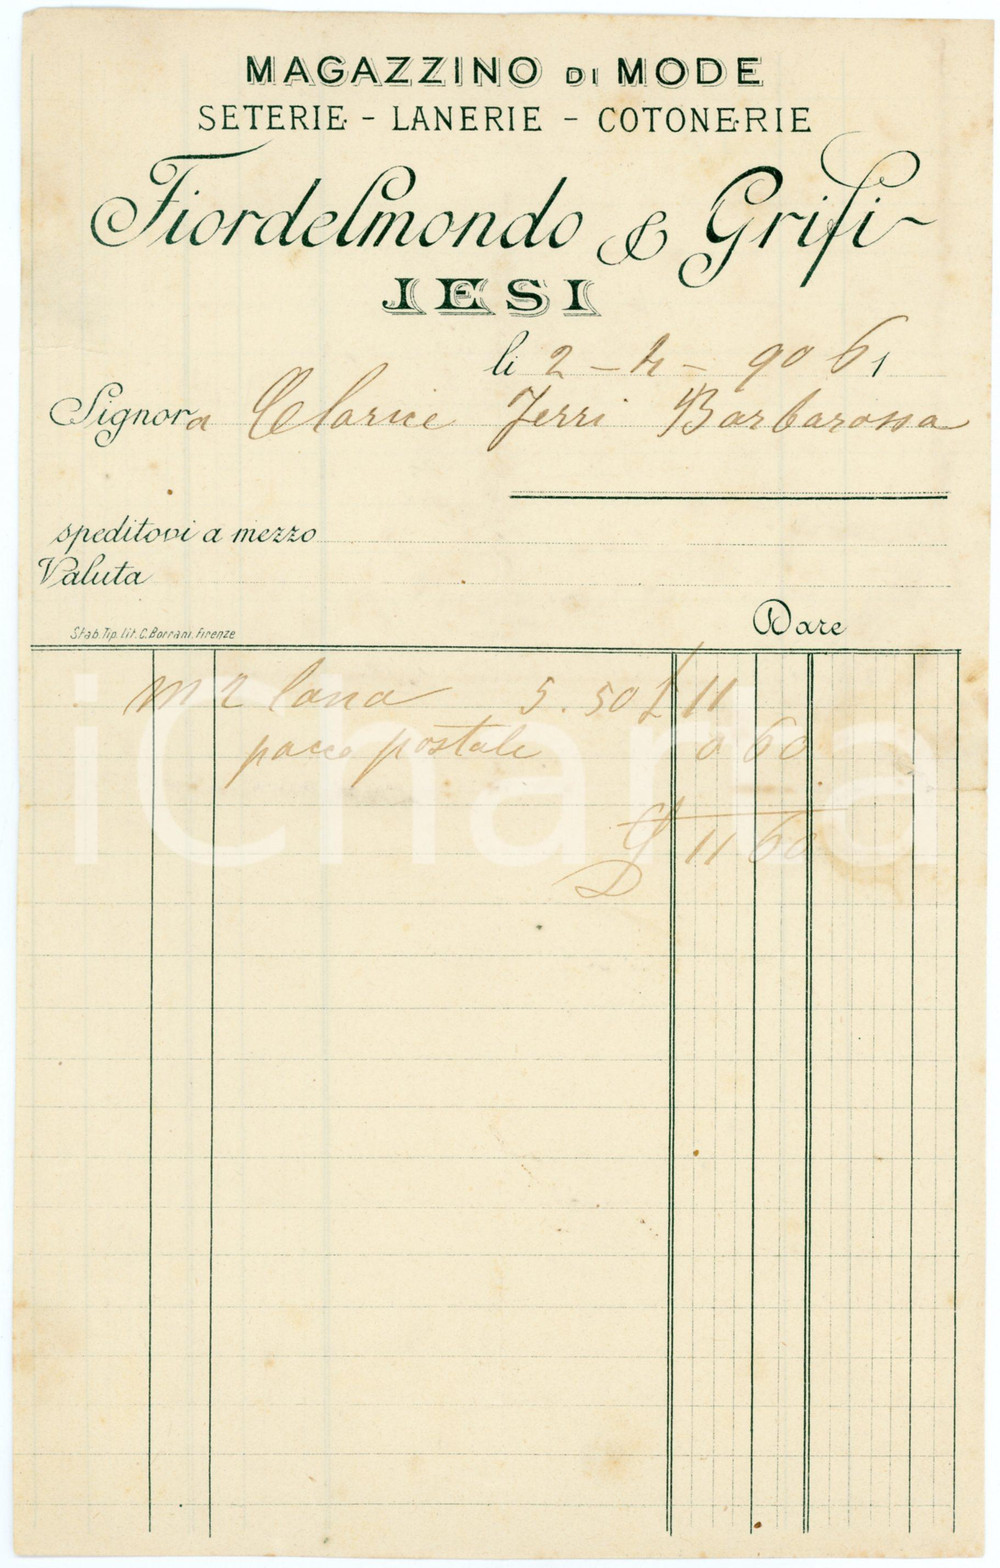 MAGAZZINO DI MODE
SETERIE - LANERIE - COTONERIE
Fiordelmondo & Grifi
JESI
li 2 - 4 - 906
Signora Clarice Ferri Barbarossa
speditovi a mezzo
Valuta
Dare
Stab. Tip. Lit. C. Borrani. Firenze
m 2 lana 5.50 £ 11
pacco postale 0 60
£ 11 60
iCharta